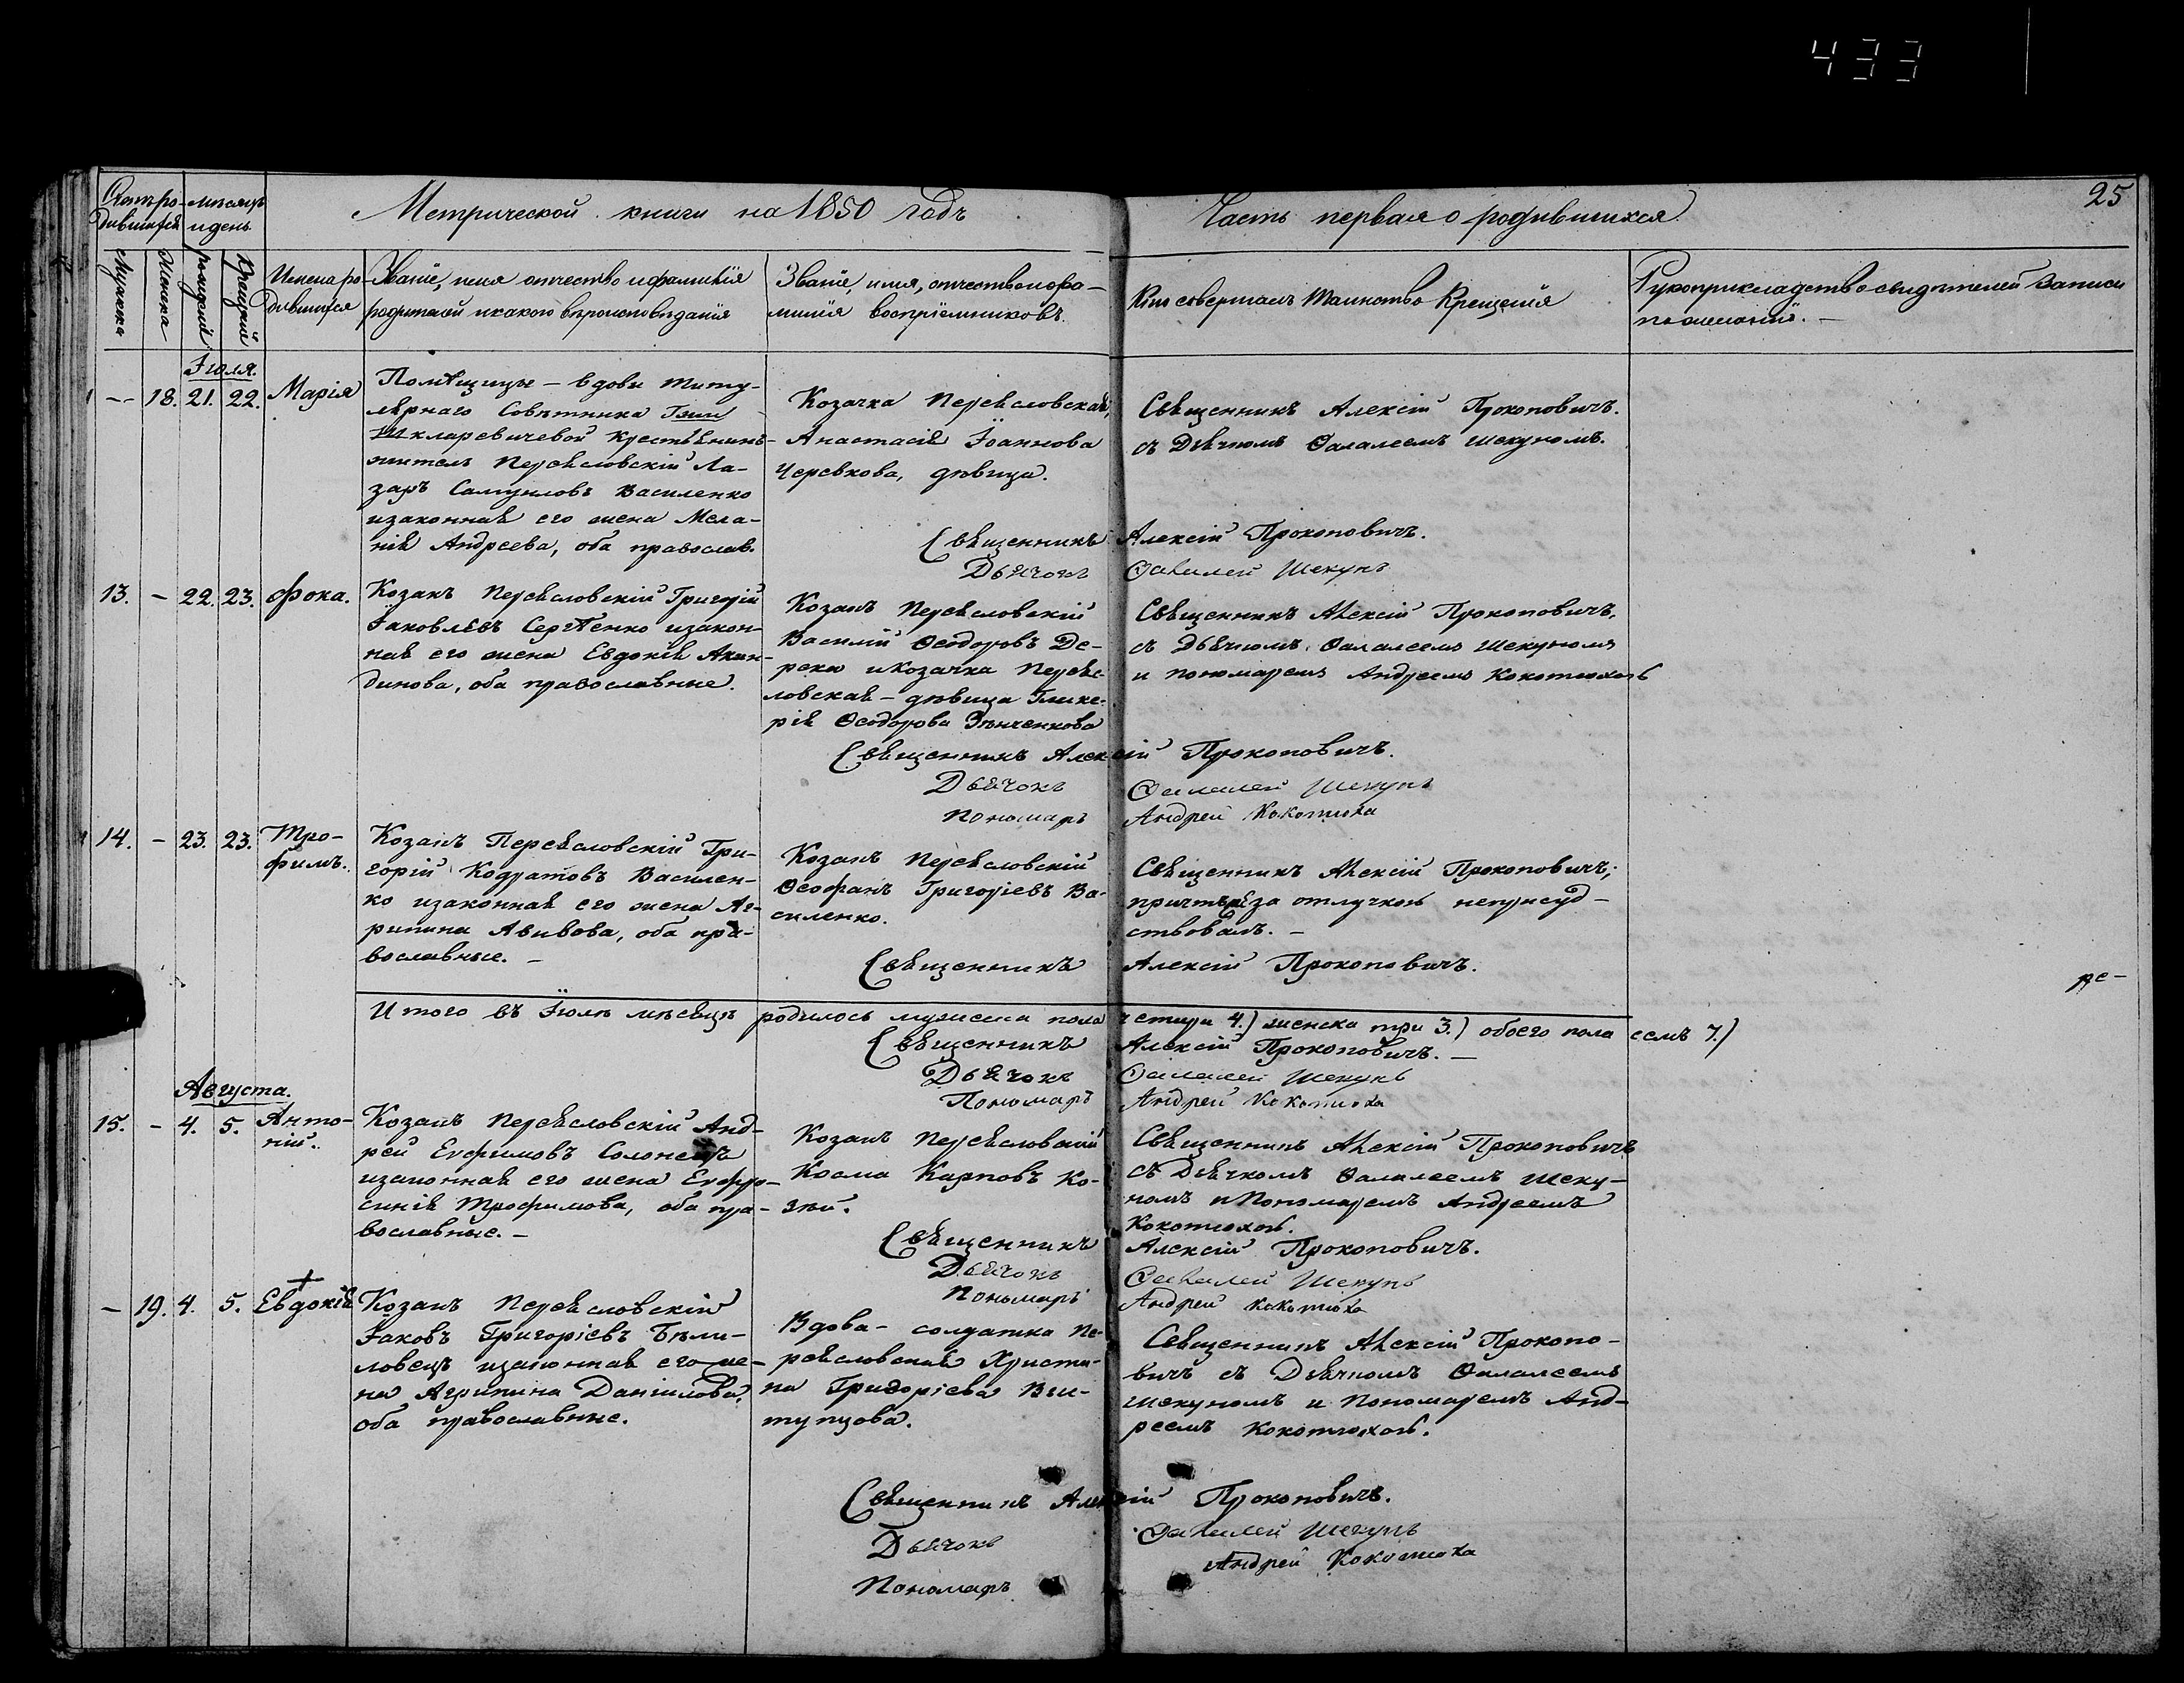 433
25
Счетъ ро-
дившихся
мѣсяцъ
и день
Метрической книги на 1850 годъ
Часть первая о родившихся
Мужеска
Женска
рожденій
Крещеній
Имена ро-
дившихся
Званіе, имя отчество и фамилія
родителей и какого вѣроисповѣданія
Званіе, имя, отчество и фа-
милія воспріемниковъ.
Кто совершалъ Таинство Крещенія
Рукоприкладство свидѣтелей записи
по желанію. —
Іюля.
— 18. 21. 22. Марія
Помѣщицы — вдовы титу-
лярнаго Совѣтника
шкляревичевой крестьянинъ
житель Переяславскій Ла-
заръ Самуиловъ Василенко
и законная его жена Мела-
нія Андреева, оба православ.
Козачка Переясловская,
Анастасія Іоаннова
Черевкова, дѣвица.
Священникъ Алексій Прокоповичъ.
съ Дьячкомъ Ѳалалеемъ Шекуномъ.
Священникъ Алексій Прокоповичъ.
Дьячокъ Ѳалалей Шекунъ
13. — 22. 23. Фока.
Козакъ Переясловскій Григорій
Іаковлевъ Сергѣенко и закон-
ная его жена Евдокія Акин-
динова, оба православные.
Козакъ Переясловскій
Василій Ѳеодоровъ Де-
река и Козачка Переяс-
ловская — дѣвица Глике-
рія Ѳеодорова Зѣнченкова
Священникъ Алексій Прокоповичъ,
съ Дьячкомъ Ѳалалеемъ Шекуномъ
и пономаремъ Андреемъ Кокотюхою
Священникъ Алексій Прокоповичъ.
Дьячокъ Ѳалалей Шекунъ
Пономарь Андрей Кокотюха
14. — 23. 23. Тро-
фимъ.
Козакъ Переясловскій Гри-
горій Кодратовъ Василен-
ко и законная его жена Аг-
рипина Авивова, оба пра-
вославные. —
Козакъ Переясловскій
Ѳеофанъ Григоріевъ Ва-
силенко.
Священникъ Алексій Прокоповичъ;
причтъ за отлучкою неприсуд-
ствовалъ. —
Священникъ Алексій Прокоповичъ.
ре-
Итого въ Іюлѣ мѣсяцѣ родилось мужеска пола четыри 4.) женска три 3.) обоего пола семъ 7.)
Священникъ Алексій Прокоповичъ. —
Дьячокъ Ѳалалей Шекунъ
Пономарь Андрей Кокотюха
Августа.
15. — 4. 5. Анто-
ній.
Козакъ Переясловскій Анд-
рей Ефимовъ Солонецъ
и законная его жена Евфро-
синія Трофимова, оба пра-
вославные. —
Козакъ Переясловскій
Косма Карповъ Ко-
зѣй.
Священникъ Алексій Прокоповичъ
съ Дьячкомъ Ѳалалеемъ Шеку-
номъ и Пономаремъ Андреемъ
Кокотюхою.
Священникъ Алексій Прокоповичъ.
Дьячокъ Ѳалалей Шекунъ
Пономарь Андрей Кокотюха
— 19. 4. 5. Евдокія
Козакъ Переясловскій
Іаковъ Григоріевъ Бѣли-
ловецъ и законная его же-
на Агрипина Даніилова,
оба православные.
Вдова — солдатка Пе-
реясловская Христи-
на Григоріева
тупцова.
Священникъ Алексій Прокопо-
вичъ съ Дьячкомъ Ѳалалеемъ
Шекуномъ и Пономаремъ Анд-
реемъ Кокотюхою.
Священникъ Алексій Прокоповичъ.
Дьячокъ Ѳалалей Шекунъ
Пономарь Андрей Кокотюха